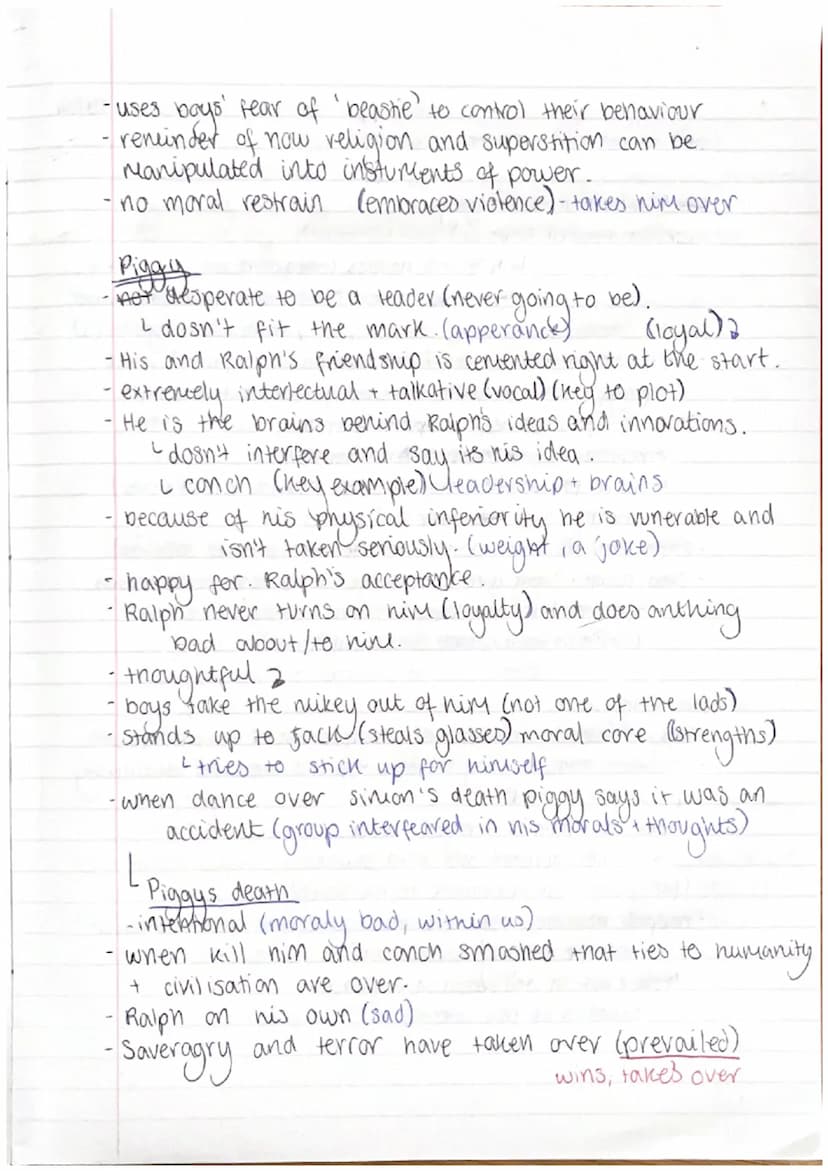 - uses boys' fear of 'beastie' to control their behaviour
- reminder of how religion and superstition can be
manipulated into instuments of power.
- no moral restrain (embraces violence) - takes him over
Piggy
- not desperate to be a leader (never going to be).
dosn't fit the mark. (apperance) (loyal)
- His and Ralph's friendship is cemented right at the start.
- extremely interlectual + talkative (vocal) (key to plot)
- He is the brains behind Ralph's ideas and innovations.
dosn't interfere and say its his idea.
conch (key example) leadership + brains
- because of his physical inferiority he is vunerable and
isn't taken seriously. (weight, a joke)
- happy for Ralph's acceptance.
- Ralph never turns on him (loyalty) and does anthing
bad about/to him.
- thoughtful
- boys take the mikey out of him (not one of the lads)
- Stands up to Jack (steals glasses) moral core (strengths)
tries to stick up for himself
- when dance over simon's death piggy says it was an
accident (group interfeared in his morals + thoughts)
Piggys death
- intentional (moraly bad, within us)
- when kill him and conch smashed that ties to humanity
+ civilisation are over.
- Ralph on his own (sad)
- Saveragry and terror have taken over (prevailed)
wins, takes over